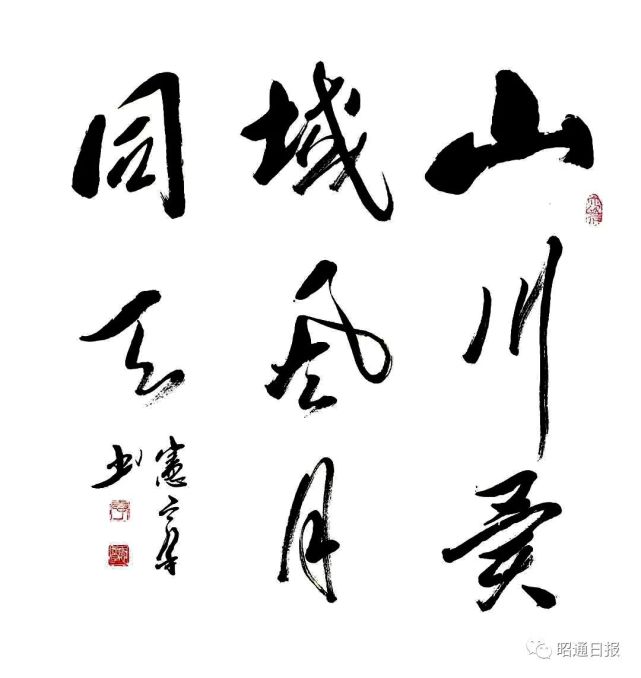 山川異
域风月
同天
书
昭通日报